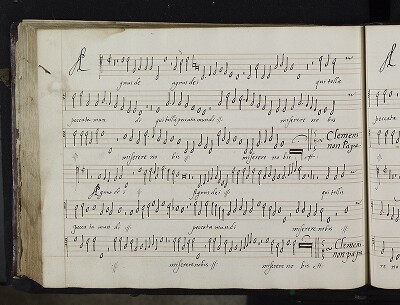 A
gnus dei agnus dei qui tollis
peccata mundi qui tollis peccata mundi miserere no
miserere no bis miserere no bis Clemens
non Papa
Agnus de i Agnus dei qui tollis
pecca ta mun di peccata mundi miserere nobis
miserere nobis miserere no bis Clemens
non papa
peccata
re no